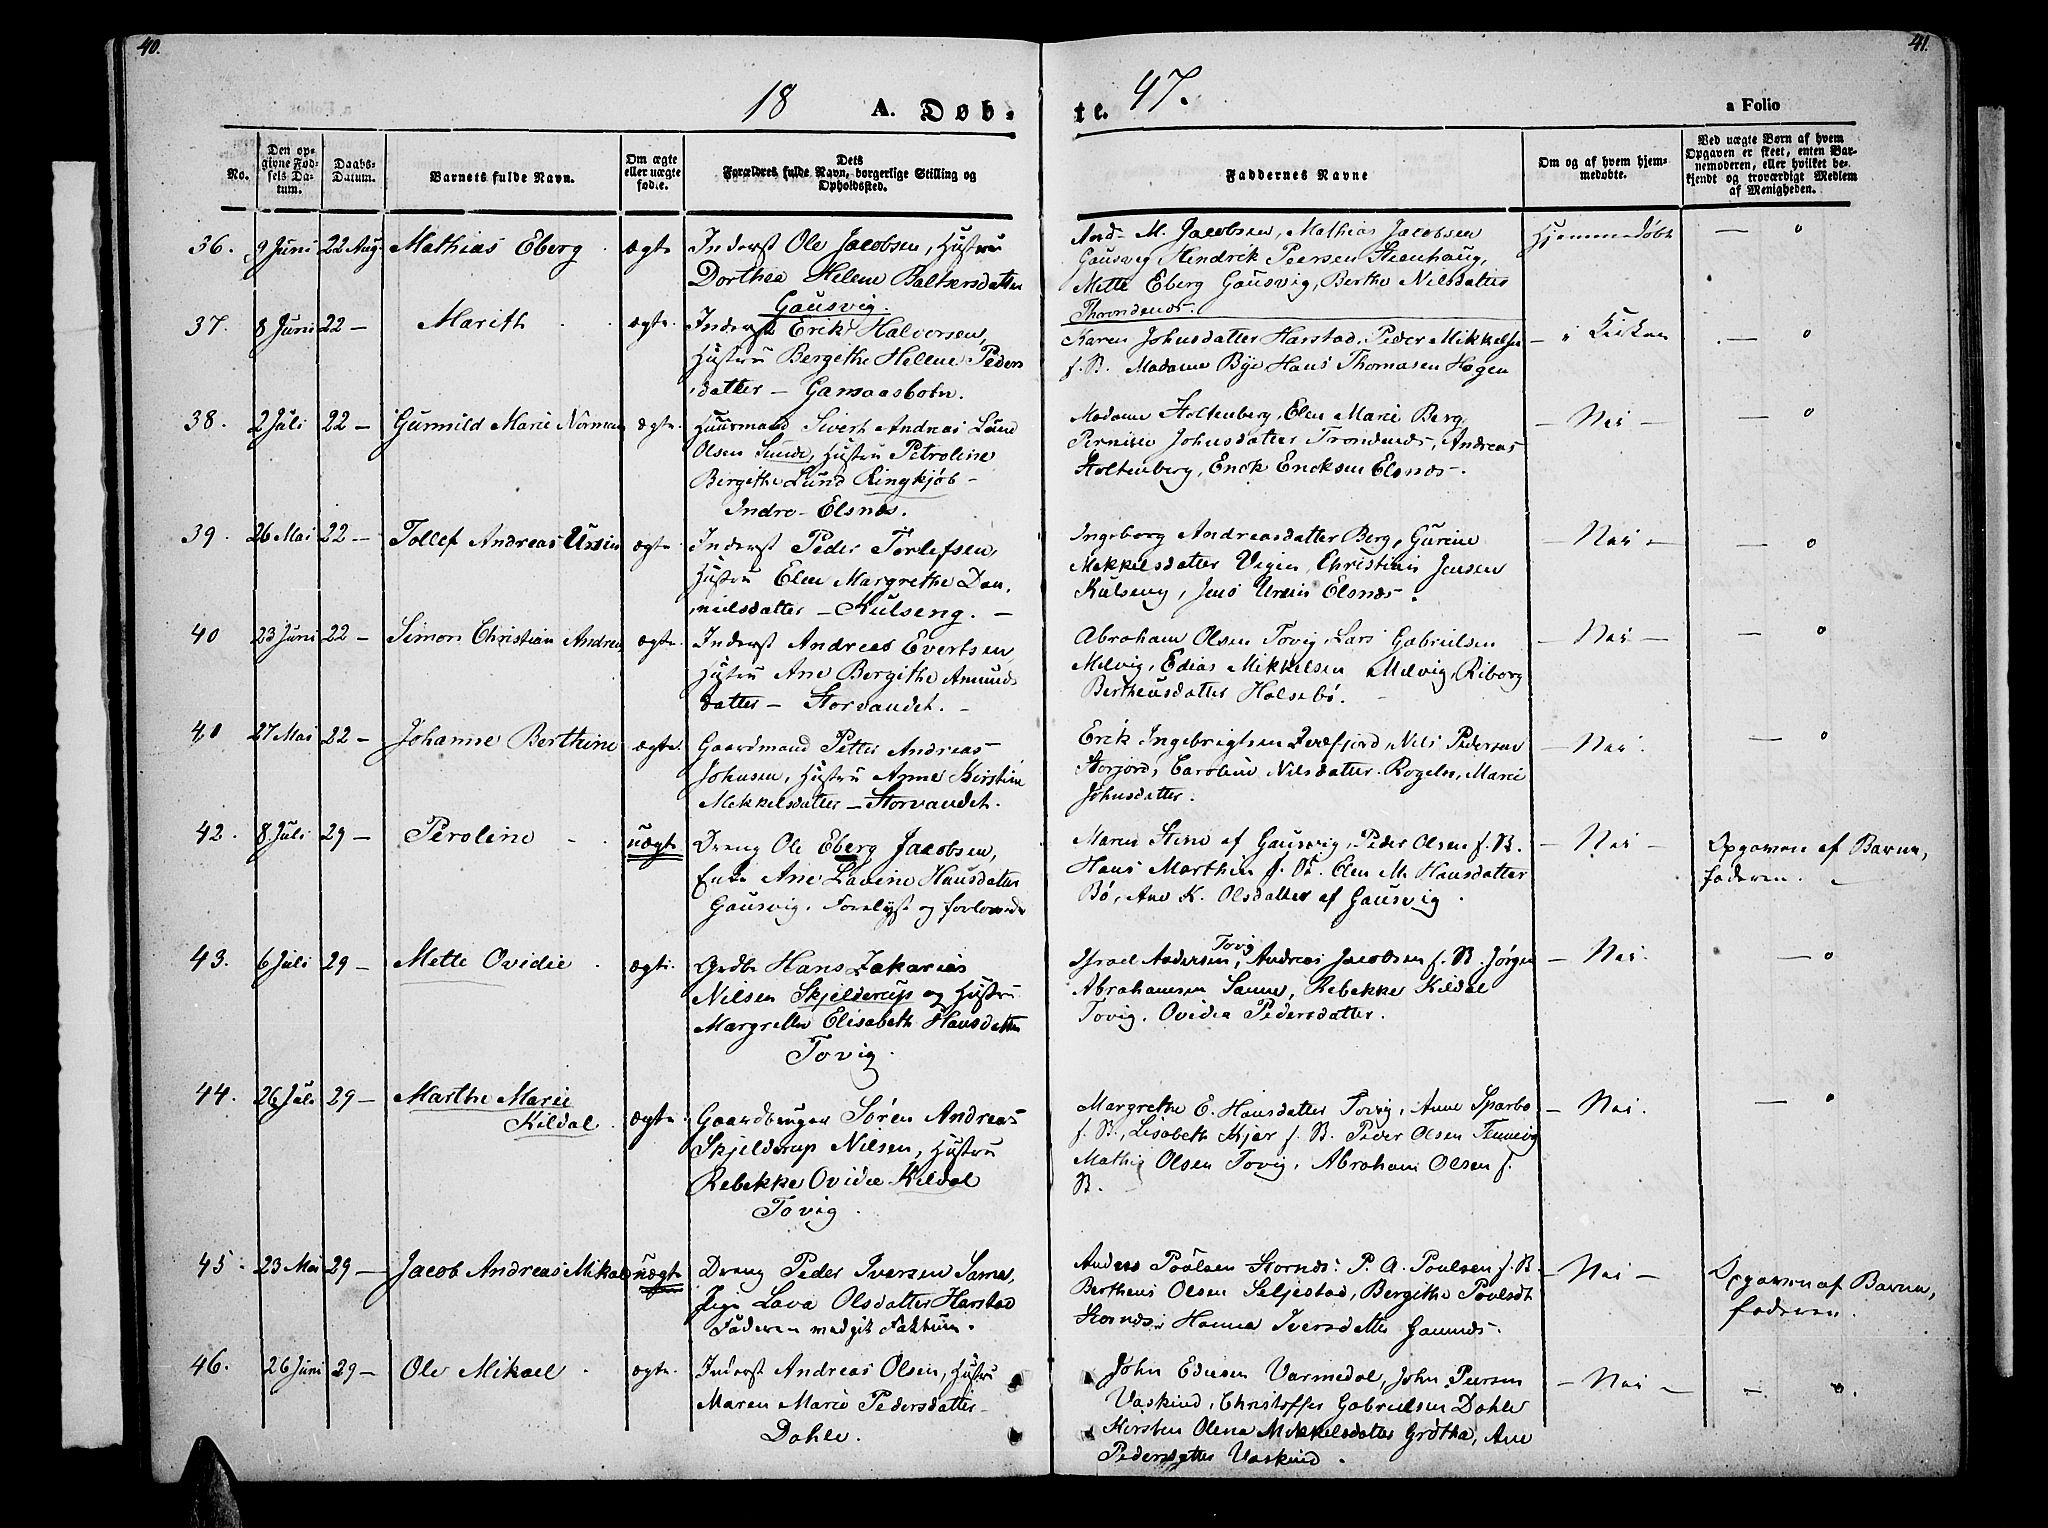 40.
41.
18 A. Døb-
te. 47.
a Folio
No.
Den op-
givne Fød-
sels Da-
tum.
Daabs-
Datum.
Barnets fulde Navn.
Om ægte
eller uægte
fødte.
Dets
Forældres fulde Navn, borgerlige Stilling og
Opholdssted.
Faddernes Navne
Om og af hvem hjem-
medøbte.
Ved uægte Børn af hvem
Opgaven er skeet, enten Bar-
nemoderen, eller hvilket be-
kjendt og troværdigt Medlem
af Menigheden.
36. 9 Juni 22 Aug Mathias Eberg ægte
Inderst Ole Jacobsen, Hustru
Dorthea Helene Baltsersdatter
Gausvig.
And- M. Jacobsen, Mathias Jacobsen
Gausvig Hendrik Peersen Steenhaug,
Mette Eberg Gausvig, Berthe Nilsdatter
Throndenæs.
Hjemmedøbt — 0
37. 8 Juni 22 — Marith ægte.
Inderst Erik Halvorsen,
Hustru Bergithe Helene Peders
datter — Gansaasbotn.
Karen Johnsdatter Harstad, Peder Mikkelsen
f. B. Madame Bye Hans Thomasen Hagen
— i Kirken — 0
38. 2 Juli 22 — Gunnild Marie Norman ægte.
Huusmand Sivert Andreas Lund
Olsen Sunde, Hustru Petroline
Bergithe Lund Ringkjøb —
Indre- Elsnæs.
Madame Stoltenberg, Elen Marie Berg,
Pernille Johnsdatter Trondenæs, Andreas
Stoltenberg, Erick Ericksen Elsnæs.
— Nei — — 0
39. 26 Mai 22 — Tollef Andreas Ursin ægte.
Inderst Peder Torlefsen,
Hustru Elen Margrethe Dan,
nielsdatter — Kulseng. —
Ingeborg Andreasdatter Berg, Gurine
Mekkelsdatter Vigen, Christian Jensen
Kulseng, Jens Ursin Elsnæs.
— Nei — — 0
40 23 Juni 22 — Simon Christian Andreas ægte.
Inderst Andreas Evertsen,
Hustru Ane Bergithe Amunds
datter — Storvandet. —
Abraham Olsen Tovig, Lars Gabrielsen
Melvig, Edias Mikkelsen Melvig, Riborg
Bertheusdatter Halsebø.
— Nei — — 0
41 27 Mai 22 — Johanne Berthine ægte.
Gaardmand Petter Andreas
Johnsen, Hustru Anne Kirstine
Mekkelsdatter — Storvandet.
Erik Ingebrigtsen Qvæfjord, Nils Pedersen
Storjord, Caroline Nilsdatter Rogeln, Marie
Johnsdatter.
— Nei. — 0
42. 8 Juli 29 — Peroline uægte
Dreng Ole Eberg Jacobsen,
Enke Ane Lavine Hansdatter
Gausvig.
Maren Stine af Gausvig, Peder Olsen f. B.
Hans Marthin f. B. Elen M. Hansdatter
Bø, Ane K. Olsdatter af Gausvig.
— Nei — Opgaven af Barne,
faderen.
43. 6 Juli 29 — Mette Ovidie ægte.
Grdbr Hans Zakarias
Nilsen Skjelderup og Hustru
Margrethe Elisabeth Hansdatter
Tovig.
Tovig
Israel Andersen, Andreas Jacobsen f. B. Jørgen
Abrahamsen Sanne, Rebekke Kildal
Tovig, Ovidia Pedersdatter.
— Nei. — 0
44. 26 Juli 29 — Marthe Marie
Kildal. ægte
Gaardbruger Søren Andreas
Skjelderup Nilsen, Hustru
Rebekke Ovidie Kildal
Tovig.
Margrethe E. Hansdatter Tovig, Anne Sparbo
f. B., Lisabeth Kjær f. B. Peder Olsen Tennevig
Mathis Olsen Tovig, Abraham Olsen f.
B.
— Nei. — 0
45. 23 Mai 29 — Jacob Andreas Mikal uægte
Dreng Peder Iversen Sama,
Pige Lava Olsdatter Harstad
Faderen medgik Faktum.
Anders Poulsen Stornæs. P. A. Poulsen f. B.
Bertheus Olsen Seljestad, Bergithe Poulsdt
Stornæs, Hanna Iversdatter
— Nei — Opgaven af Barne,
faderen.
46. 26 Juni 29 — Ole Mikael ægte.
Inderst Andreas Olsen, Hustru
Maren Marie Pedersdatter —
Dahle.
John Ediesen Varmedal, John Peersen
Vaskind, Christoffer Gabrielsen Dahle
Kirsten Olena Mekkelsdatter Grøtha, Ane
Pedersdatter Vaskind.
— Nei — — 0.